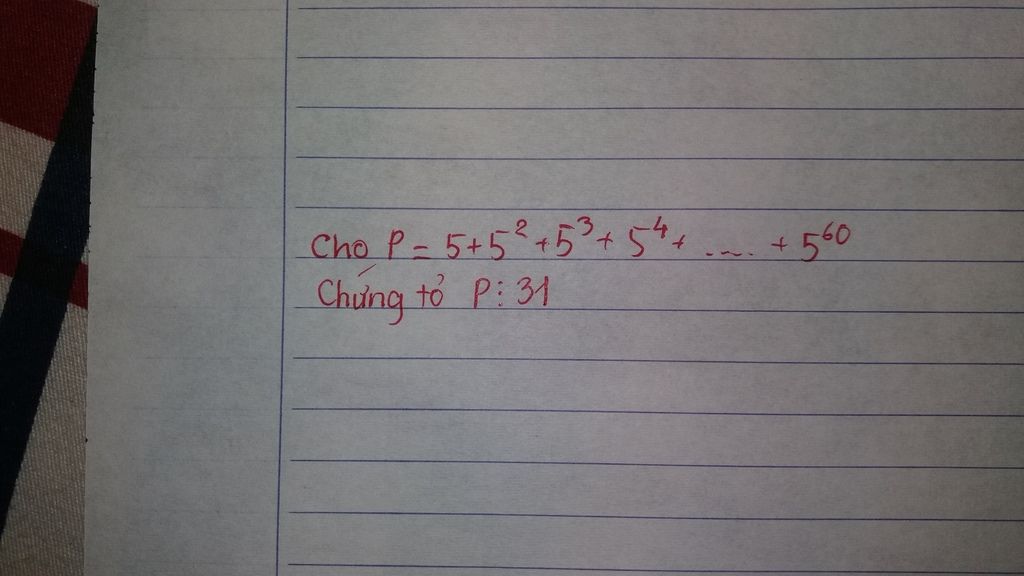 Cho P = 5 + 5² + 5³ + 5⁴ + ..... + 5⁶⁰
Chứng tỏ P ⋮ 31